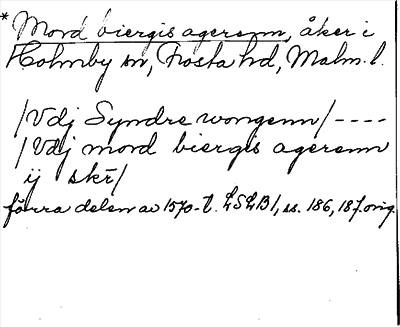 * Mord biergis agerenn, åker i
Holmby sn, Frosta hd, Malm. l.
/Vdj Syndre wongenn/----
/Vdj mord biergis agerenn
ij skr̄/
förra delen av 1570-t. LSLB 1, ss. 186, 187. orig.